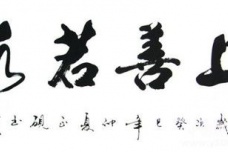 上善若水
歲次癸巳年仲夏